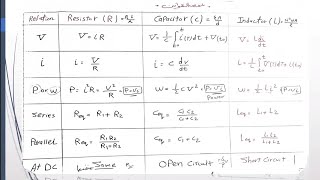 Relation Resistor (R) Capacitor (C) Inductor (L)
V V = iR V = 1/C ∫ i(t)dt + V(t₀) V = L di/dt
i i = V/R i = C dv/dt i = 1/L ∫
P or W P = i²R = V²/R W = 1/2 CV² W = 1/2 Li²
Series Req = R1 + R2 Ceq = C1C2/C1+C2 Leq = L1 + L2
Parallel Req = R1R2/R1+R2 Ceq = C1 + C2 Leq = L1L2/L1+L2
At DC Same Open Circuit Short Circuit